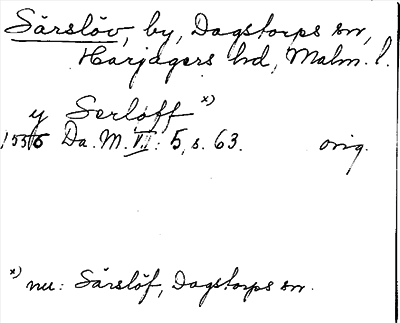 Särslöv, by, Dagstorps sn,
Harjagers hd, Malm. l.
y Serløff x)
Da. M. VII: 5, s. 63. orig.
x) nu: Särslöf, Dagstorps sn.